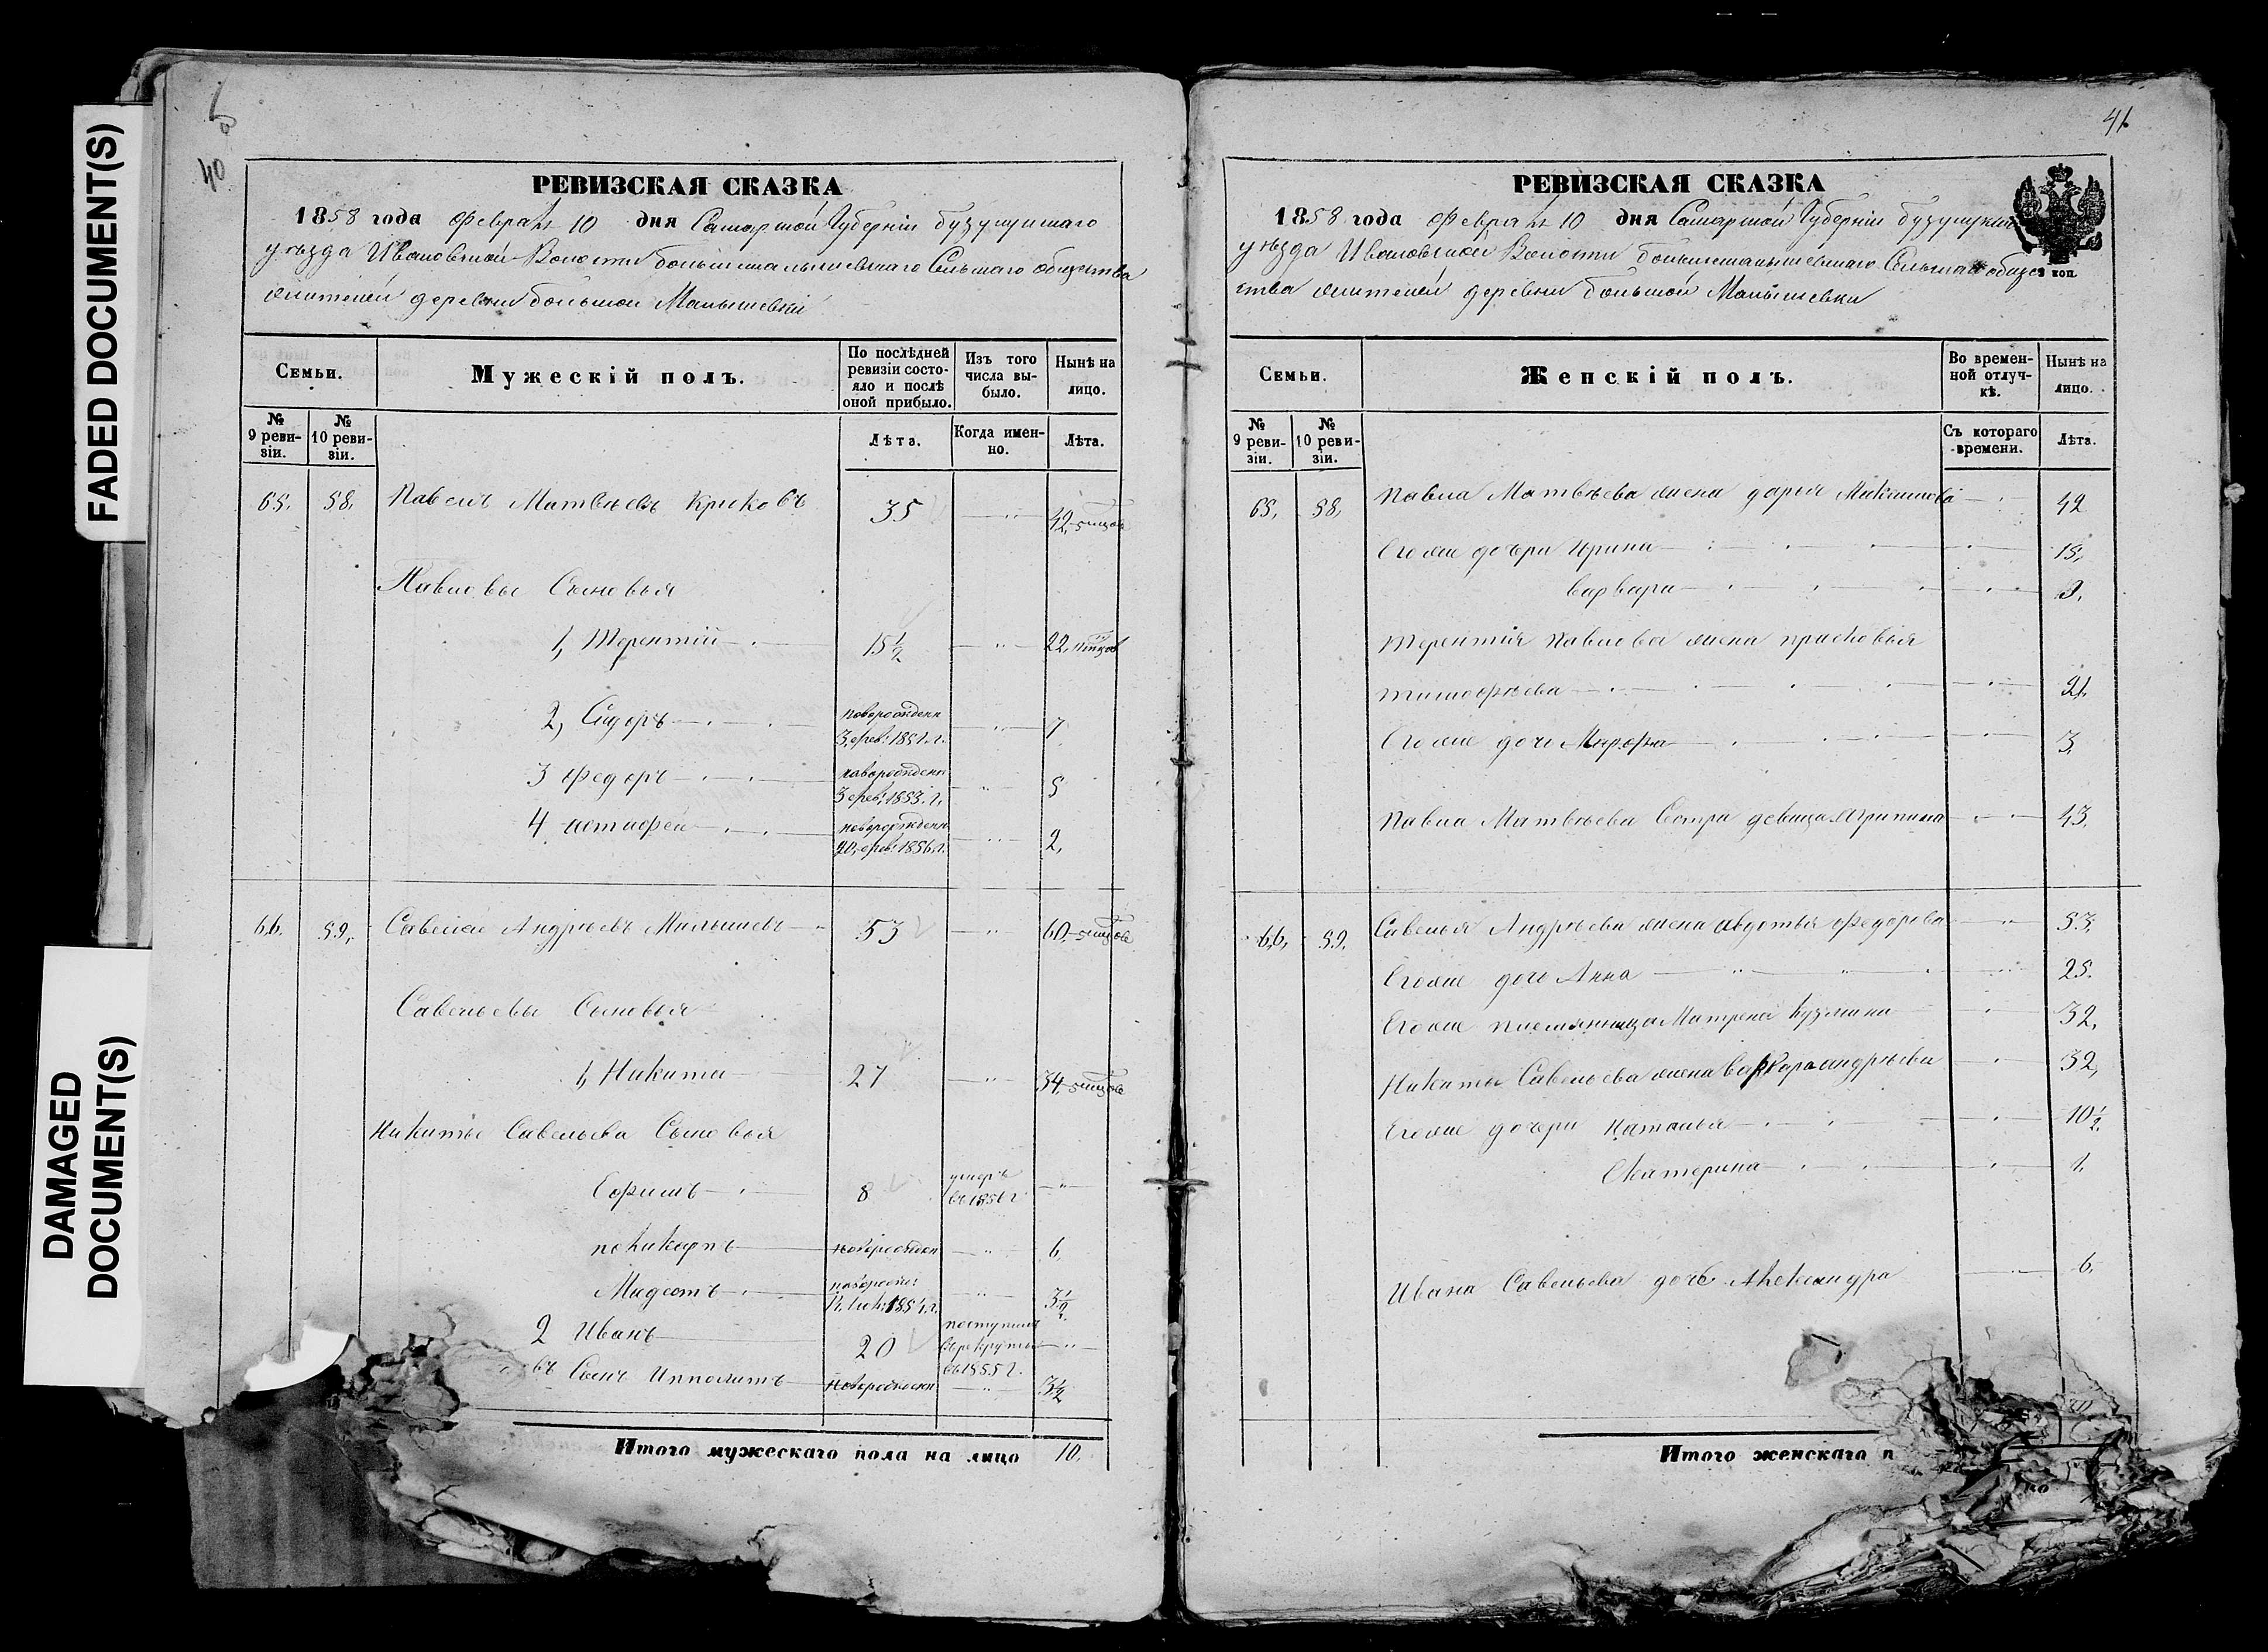 FADED DOCUMENT(S)
DAMAGED
DOCUMENT(S)
40
РЕВИЗСКАЯ СКАЗКА
1858 года февраля 10 дня Самарской Губерніи бузулукскаго
уѣзда Ивановской Волости большемалышевскаго Сельскаго общества
жителей деревни большой Малышевки
Семьи.
Мужескій полъ.
По послѣдней ревизіи состояло и послѣ оной прибыло.
Изъ того числа выбыло.
Нынѣ на лицо.
№ 9 ревизіи.
№ 10 ревизіи.
Лѣта.
Когда именно.
Лѣта.
65. 58. Павелъ Матвѣевъ Крюковъ 35 42
Павловы Сыновья
1, Терентий 15½ 22
2, Сидоръ новорожденн 3, фев: 1851. г. 7
3 федоръ новорожденн 3 фев: 1853. г. 5
4 астафей новорожденн 20, фев: 1856. г. 2,
66. 59, Савелей Андреевъ Малышевъ 53 60
Савельевы Сыновья
1, Никита 27 34
Никиты Савельева Сыновья
Ефимъ 8 умеръ въ 1856 г
поликарпъ новорожден 6,
Мадестъ новорожд: 1854. г. 3½
2 Иванъ 20 поступилъ в рекруты въ 1855 г.
въ Сынъ Ипполитъ новорожденн 3½
Итого мужескаго пола на лицо 10.
41.
РЕВИЗСКАЯ СКАЗКА
1858 года февраля 10 дня Самарской Губерніи бузулукскаго
уѣзда Ивановской Волости большемалышевскаго Сельскаго общес
коп
ства жителей деревни большой Малышевки
Семьи.
Женскій полъ.
Во временной отлучкѣ.
Нынѣ на лицо.
№ 9 ревизіи.
№ 10 ревизіи.
Съ котораго времени.
Лѣта.
65, 58, Павла Матвѣева жена дарья Максимова 42
Егоже дочери Ирина 15,
варвара 9.
Терентия павлова жена прасковья
тимофѣева 21.
Егоже дочь Марфа 3,
Павла Матвѣева Сестра девица Агрипина 43.
66, 59. Савелья Андрѣева жена авдотья Федорова 53,
Егоже дочь Анна 25.
Егоже племянница Матрена Кузмина 32,
Никиты Савельева жена варвара андрѣева 32,
Егоже дочери Наталья 10½.
Екатерина 1.
Ивана Савельева дочь Александра 6.
Итого женскаго п